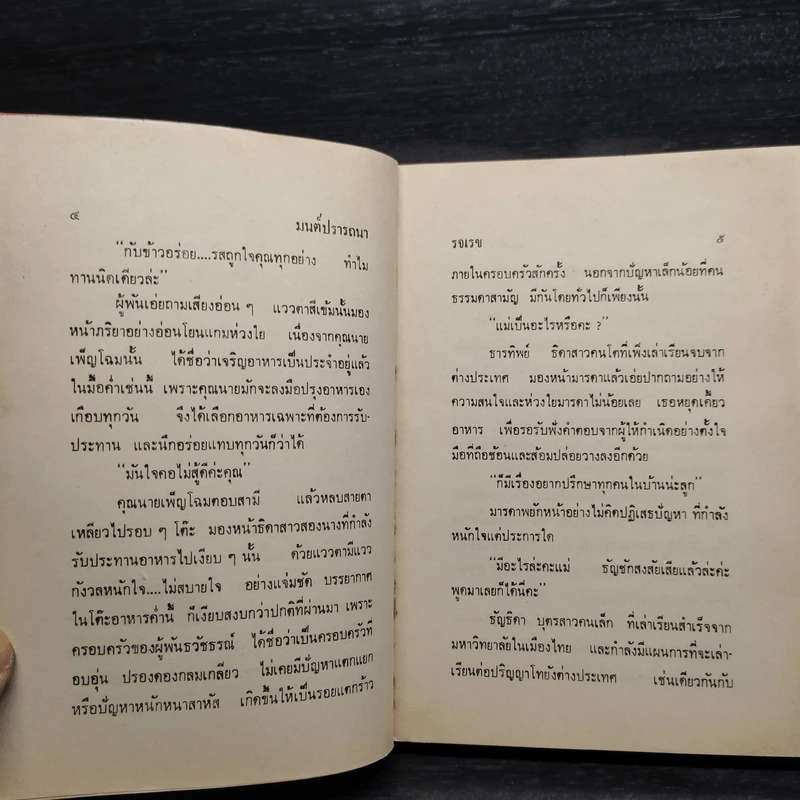 ๔
มนต์ปรารถนา
“กับข้าวอร่อย....รสถูกใจคุณทุกอย่าง ทำไม
ทานนิดเดียวล่ะ”
ผู้พันเอ่ยถามเสียงอ่อน ๆ แววตาสีเข้มนั้นมอง
หน้าภริยาอย่างอ่อนโยนแกมห่วงใย เนื่องจากคุณนาย
เพ็ญโฉมนั้น ได้ชื่อว่าเจริญอาหารเป็นประจำอยู่แล้ว
ในมื้อค่ำเช่นนี้ เพราะคุณนายมักจะลงมือปรุงอาหารเอง
เกือบทุกวัน จึงได้เลือกอาหารเฉพาะที่ต้องการรับ-
ประทาน และนึกอร่อยแทบทุกวันก็ว่าได้
“มันใจคอไม่สู้ดีค่ะคุณ”
คุณนายเพ็ญโฉมตอบสามี แล้วหลบสายตา
เหลียวไปรอบ ๆ โต๊ะ มองหน้าธิดาสาวสองนางที่กำลัง
รับประทานอาหารไปเงียบ ๆ นั้น ด้วยแววตามีแวว
กังวลหนักใจ....ไม่สบายใจ อย่างแจ่มชัด บรรยากาศ
ในโต๊ะอาหารค่ำนี้ ก็เงียบสงบกว่าปกติที่ผ่านมา เพราะ
ครอบครัวของผู้พันธวัชธรณ์ ได้ชื่อว่าเป็นครอบครัวที่
อบอุ่น ปรองดองกลมเกลียว ไม่เคยมีปัญหาแตกแยก
หรือปัญหาหนักหนาสาหัส เกิดขึ้นให้เป็นรอยแตกร้าว
รจเรข
๕
ภายในครอบครัวสักครั้ง นอกจากปัญหาเล็กน้อยที่คน
ธรรมดาสามัญ มีกันโดยทั่วไปก็เพียงนั้น
“แม่เป็นอะไรหรือคะ ?”
ธารทิพย์ ธิดาสาวคนโตที่เพิ่งเล่าเรียนจบจาก
ต่างประเทศ มองหน้ามารดาแล้วเอ่ยปากถามอย่างให้
ความสนใจและห่วงใยมารดาไม่น้อยเลย เธอหยุดเคี้ยว
อาหาร เพื่อรอรับฟังคำตอบจากผู้ให้กำเนิดอย่างตั้งใจ
มือที่ถือช้อนและส้อมปล่อยวางลงอีกด้วย
“ก็มีเรื่องอยากปรึกษาทุกคนในบ้านน่ะลูก”
มารดาพยักหน้าอย่างไม่คิดปฏิเสธปัญหา ที่กำลัง
หนักใจแต่ประการใด
“มีอะไรล่ะคะแม่ ธัญชักสงสัยเสียแล้วล่ะค่ะ
พูดมาเลยก็ได้นี่คะ”
ธัญธิดา บุตรสาวคนเล็ก ที่เล่าเรียนสำเร็จจาก
มหาวิทยาลัยในเมืองไทย และกำลังมีแผนการที่จะเล่า-
เรียนต่อปริญญาโทยังต่างประเทศ เช่นเดียวกันกับ